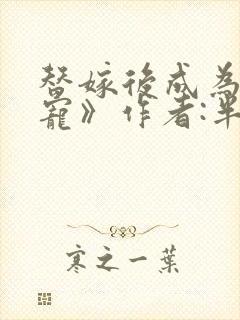 替嫁後成為
寵》作者:半
寒之一葉